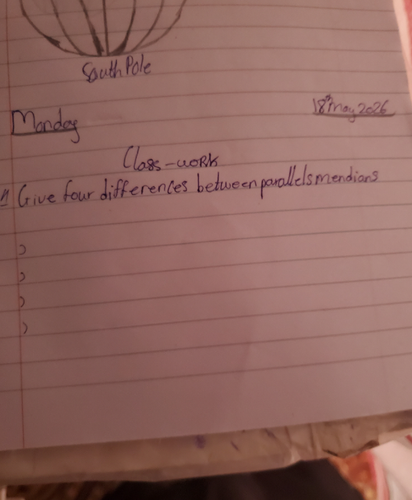 South Pole
Monday
18th May 2026
Class-work
1 Give four differences between parallels mendians
)
)
)
)